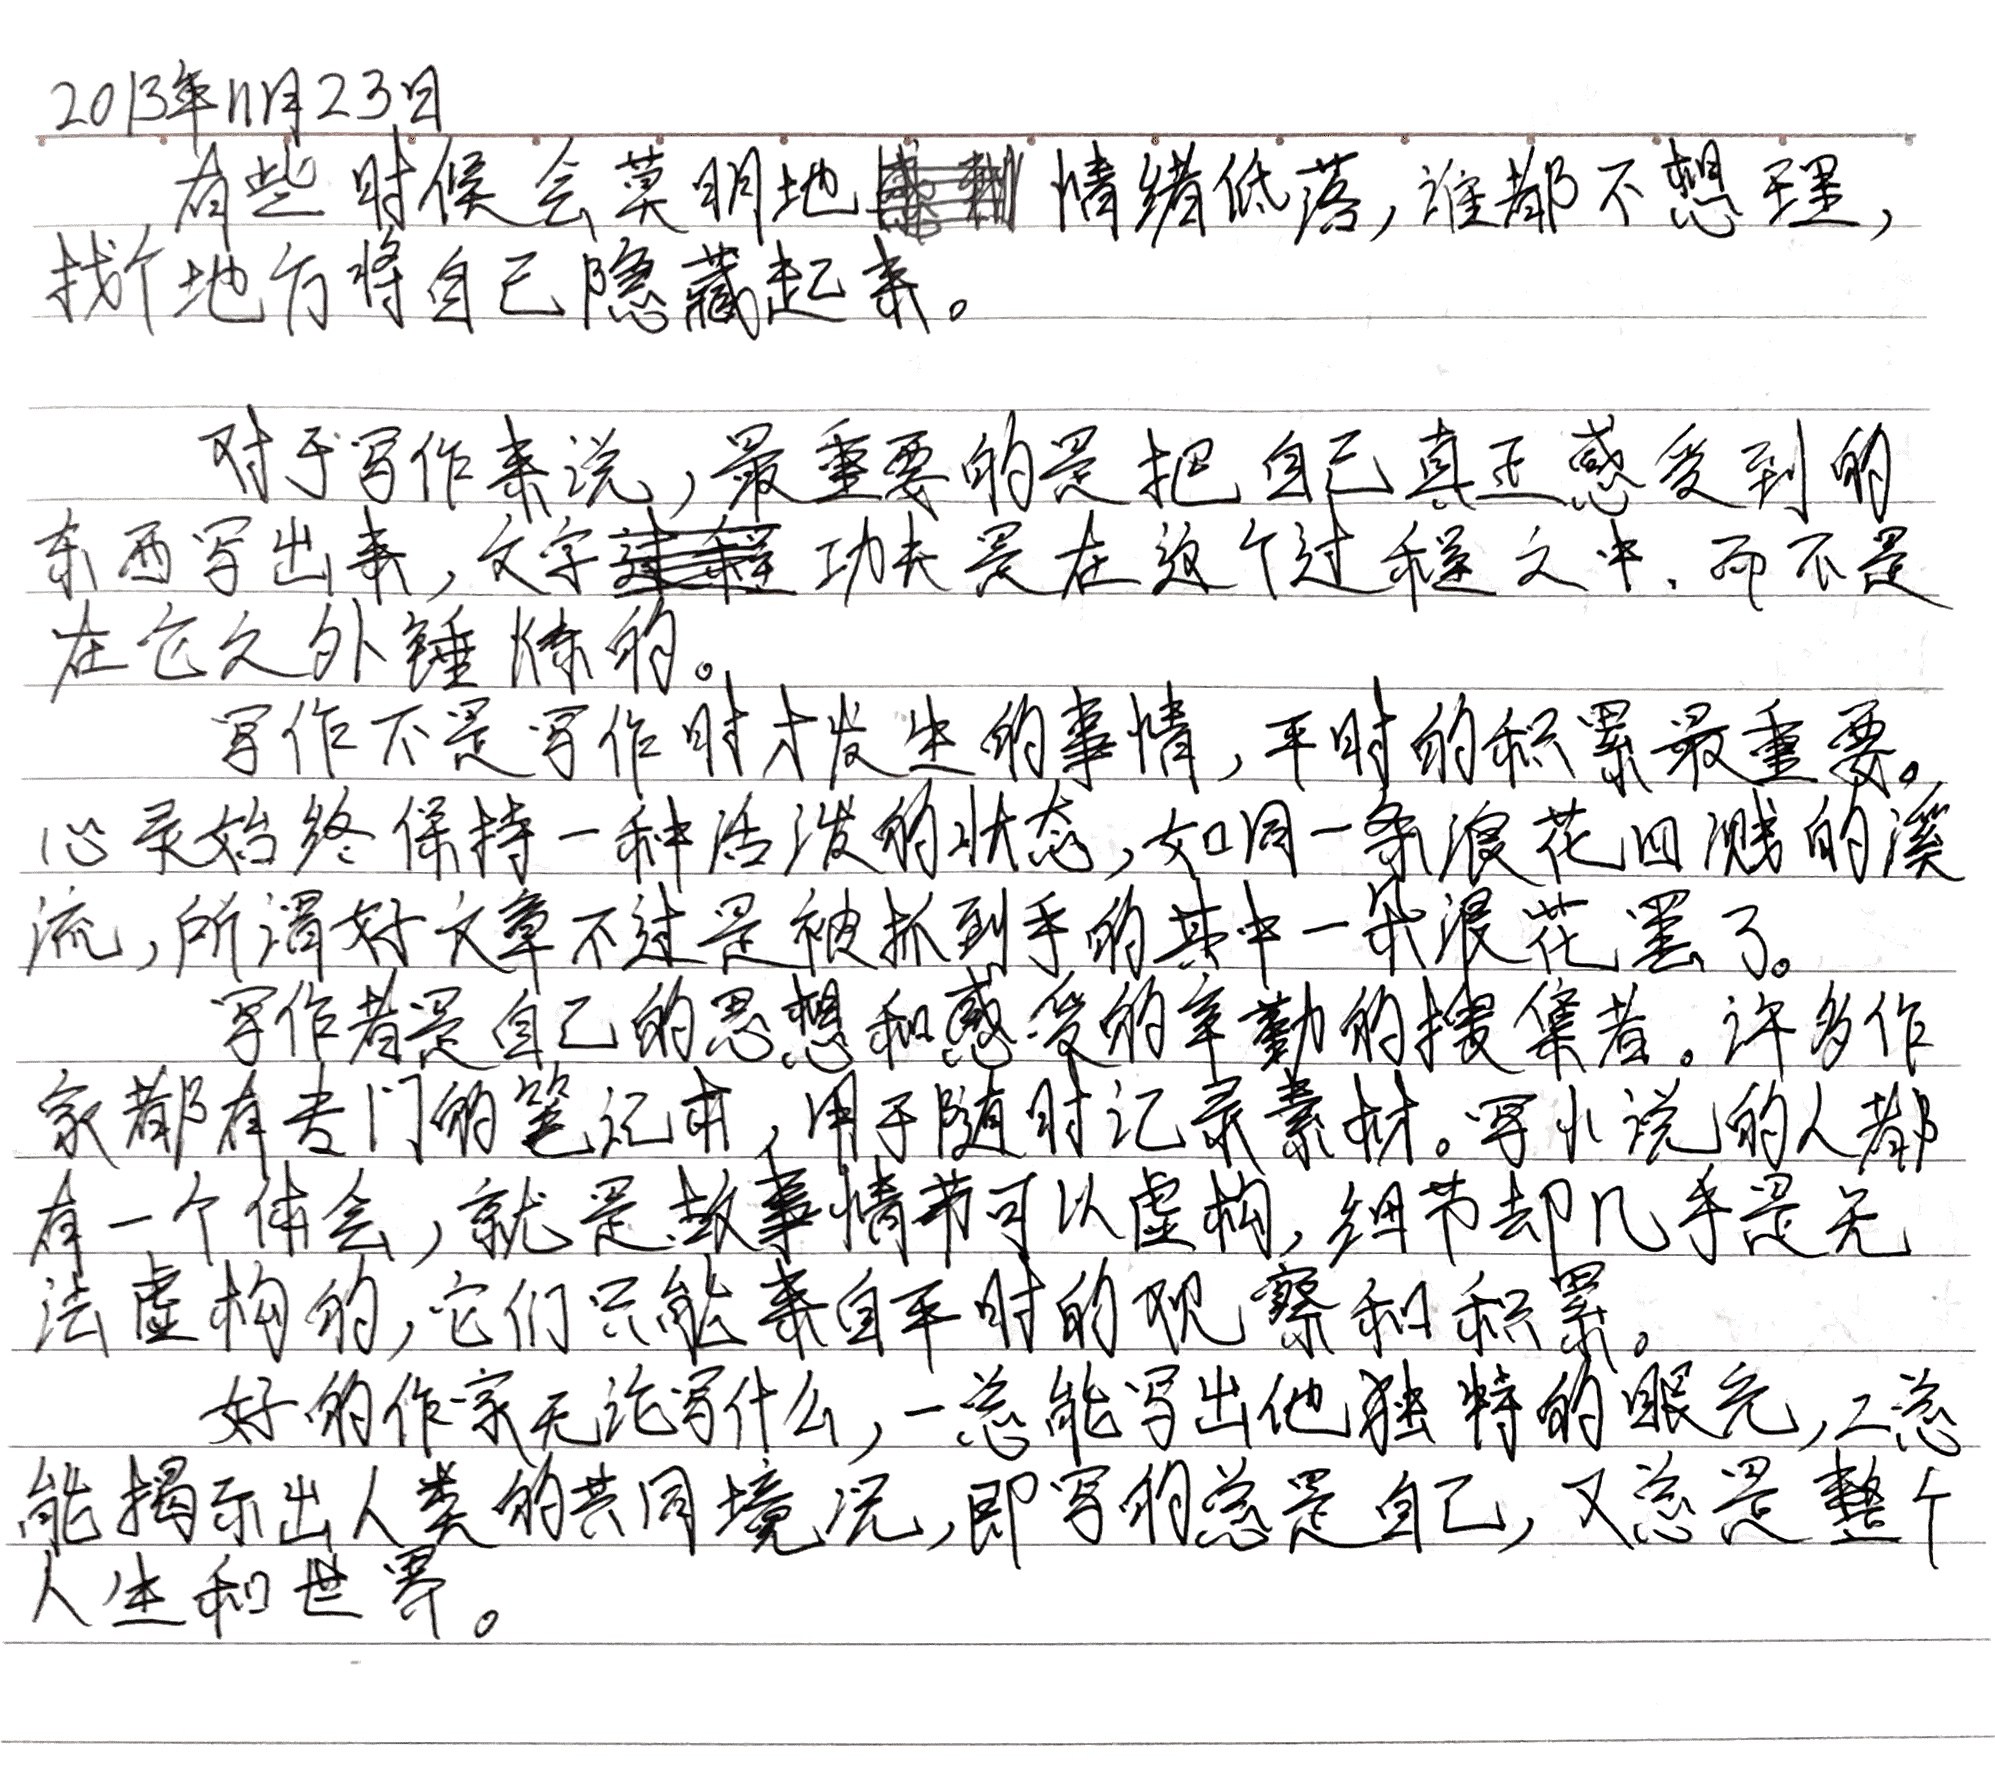 2013年11月23日
有些时候会莫明地情绪低落，谁都不想理，
找个地方将自己隐藏起来。
对于写作来说，最重要的是把自己真正感受到的
东西写出来，文字功夫是在这个过程之中，而不是
在它之外锤炼的。
写作不是写作时才发生的事情，平时的积累最重要。
心灵始终保持一种活泼的状态，如同一条浪花四溅的溪
流，所谓好文章不过是被抓到手的其中一朵浪花罢了。
写作者是自己的思想和感受的辛勤的搜集者。许多作
家都有专门的笔记本，用于随时记录素材。写小说的人都
有一个体会，就是故事情节可以虚构，细节却几乎是无
法虚构的，它们只能来自平时的观察和积累。
好的作家无论写什么，一总能写出他独特的眼光，二总
能揭示出人类的共同境况，即写的总是自己，又总是整个
人生和世界。